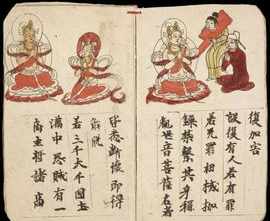 復加害
設復有人若有罪
若无罪杻械枷
鎖檢繫其身稱
觀世音菩薩名者
皆悉斷壞即得
解脫
若三千大千國土
滿中怨賊有一
商主將諸商